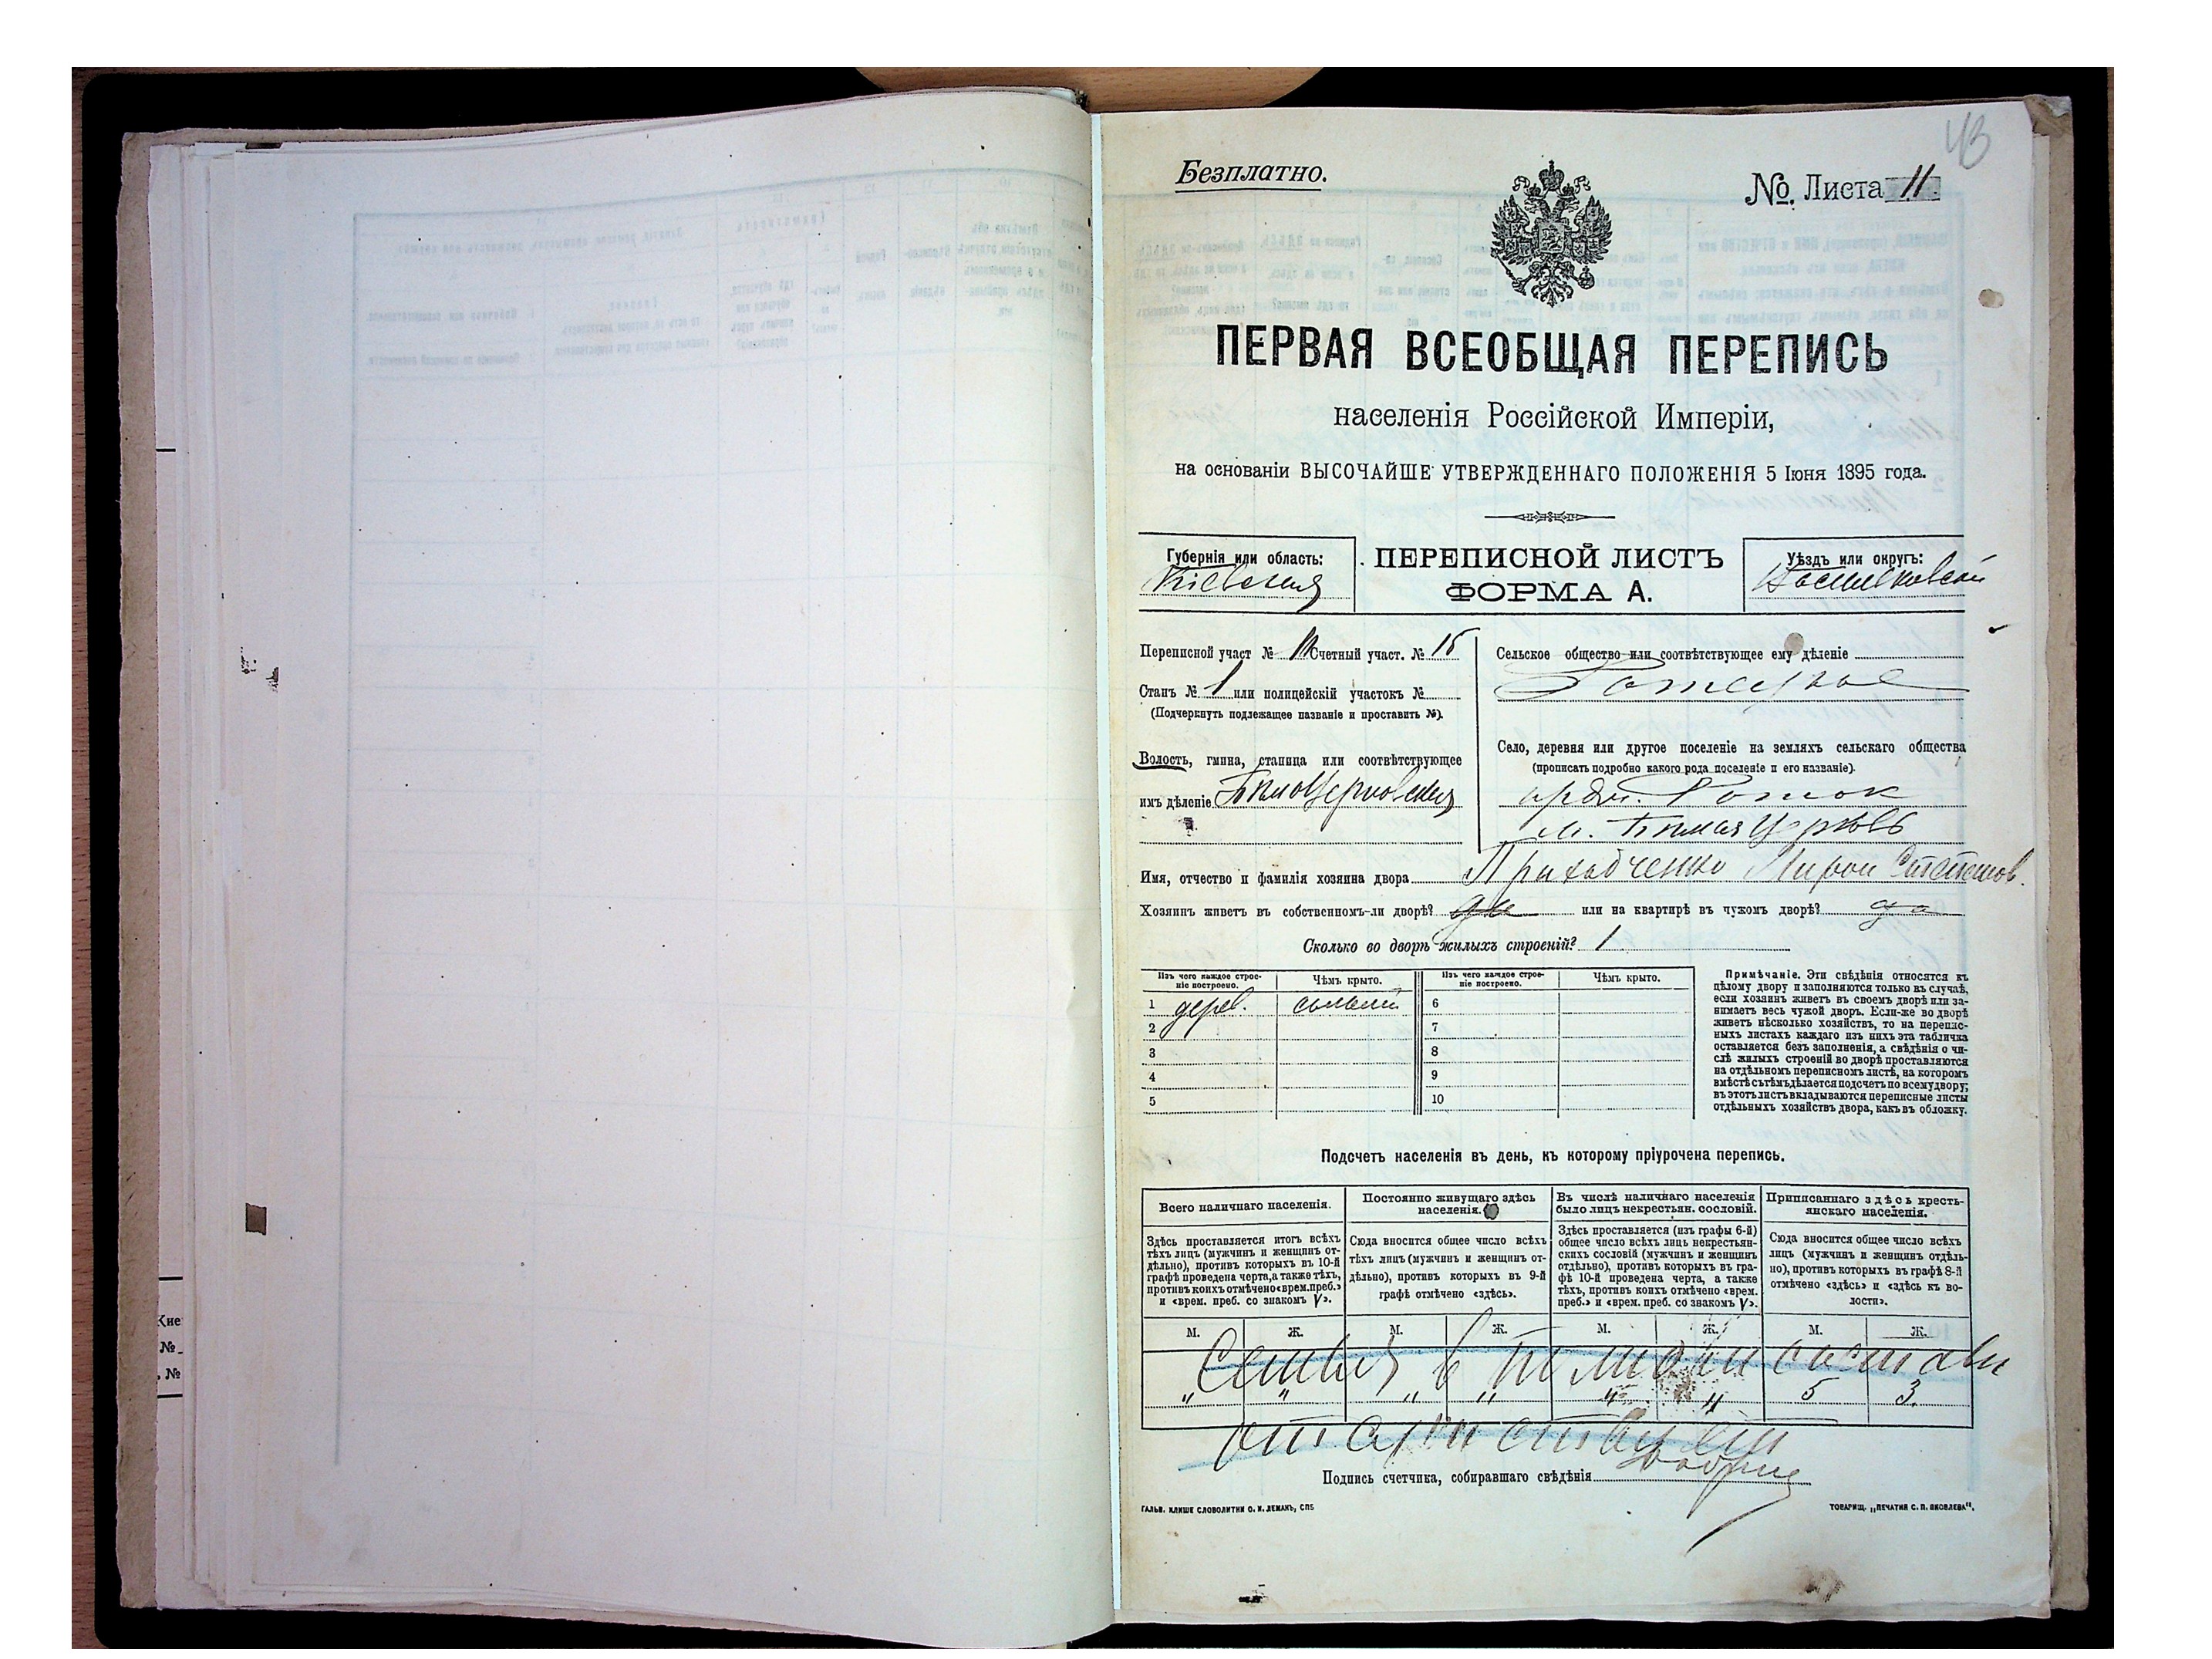 43
Безплатно.
№. Листа 11
ПЕРВАЯ ВСЕОБЩАЯ ПЕРЕПИСЬ
населенія Россійской Имперіи,
на основаніи ВЫСОЧАЙШЕ УТВЕРЖДЕННАГО ПОЛОЖЕНІЯ 5 Іюня 1895 года.
Губернія или область:
Кіевская
ПЕРЕПИСНОЙ ЛИСТЪ
ФОРМА А.
Уѣздъ или округъ:
Васильковскій
Переписной участ № Счетный участ. № 15
Станъ № 1 или полицейскій участокъ №
(Подчеркнуть подлежащее названіе и проставить №).
Волость, гмина, станица или соотвѣтствующее
имъ дѣленіе Бѣлоцерковская
Сельское общество или соотвѣтствующее ему дѣленіе
Ротокское
Село, деревня или другое поселеніе на земляхъ сельскаго общества
(прописать подробно какого рода поселеніе и его названіе).
предм. Роток
м. Бѣлая Церковь
Имя, отчество и фамилія хозяина двора Приходченко Мирон Степанов.
Хозяинъ живетъ въ собственномъ-ли дворѣ? да или на квартирѣ въ чужомъ дворѣ? да
Сколько во дворѣ жилыхъ строеній? 1
Изъ чего каждое строе-
ніе построено.
Чѣмъ крыто.
Изъ чего каждое строе-
ніе построено.
Чѣмъ крыто.
1 дерев. соломой 6
2 7
3 8
4 9
5 10
Примѣчаніе. Эти свѣдѣнія относятся къ
цѣлому двору и заполняются только въ случаѣ,
если хозяинъ живетъ въ своемъ дворѣ или за-
нимаетъ весь чужой дворъ. Если-же во дворѣ
живетъ нѣсколько хозяйствъ, то на перепис-
ныхъ листахъ каждаго изъ нихъ эта табличка
оставляется безъ заполненія, а свѣдѣнія о чи-
слѣ жилыхъ строеній во дворѣ проставляются
на отдѣльномъ переписномъ листѣ, на которомъ
вмѣстѣ съ тѣмъ дѣлается подсчетъ по всему двору;
въ этотъ листъ вкладываются переписные листы
отдѣльныхъ хозяйствъ двора, какъ въ обложку.
Подсчетъ населенія въ день, къ которому пріурочена перепись.
Всего наличнаго населенія.
Здѣсь проставляется итогъ всѣхъ
тѣхъ лицъ (мужчинъ и женщинъ от-
дѣльно), противъ которыхъ въ 10-й
графѣ проведена черта, а также тѣхъ,
противъ коихъ отмѣчено «врем. преб.»
и «врем. преб. со знакомъ V».
Постоянно живущаго здѣсь
населенія.
Сюда вносится общее число всѣхъ
тѣхъ лицъ (мужчинъ и женщинъ от-
дѣльно), противъ которыхъ въ 9-й
графѣ отмѣчено «здѣсь».
Въ числѣ наличнаго населенія
было лицъ некрестьян. сословій.
Здѣсь проставляется (изъ графы 6-й)
общее число всѣхъ лицъ некрестьян-
скихъ сословій (мужчинъ и женщинъ
отдѣльно), противъ которыхъ въ гра-
фѣ 10-й проведена черта, а также
тѣхъ, противъ коихъ отмѣчено «врем.
преб.» и «врем. преб. со знакомъ V».
Приписаннаго здѣсь кресть-
янскаго населенія.
Сюда вносится общее число всѣхъ
лицъ (мужчинъ и женщинъ отдѣль-
но), противъ которыхъ въ графѣ 8-й
отмѣчено «здѣсь» и «здѣсь къ во-
лости».
М. Ж. М. Ж. М. Ж. М. Ж.
Семья в полном составѣ
" " " " " " 5 3.
отсутствует
Подпись счетчика, собиравшаго свѣдѣнія
ГАЛЬВ. КЛИШЕ СЛОВОЛИТНИ О. И. ЛЕМАНЪ, СПБ
ТОВАРИЩ. „ПЕЧАТНЯ С. П. ЯКОВЛЕВА".